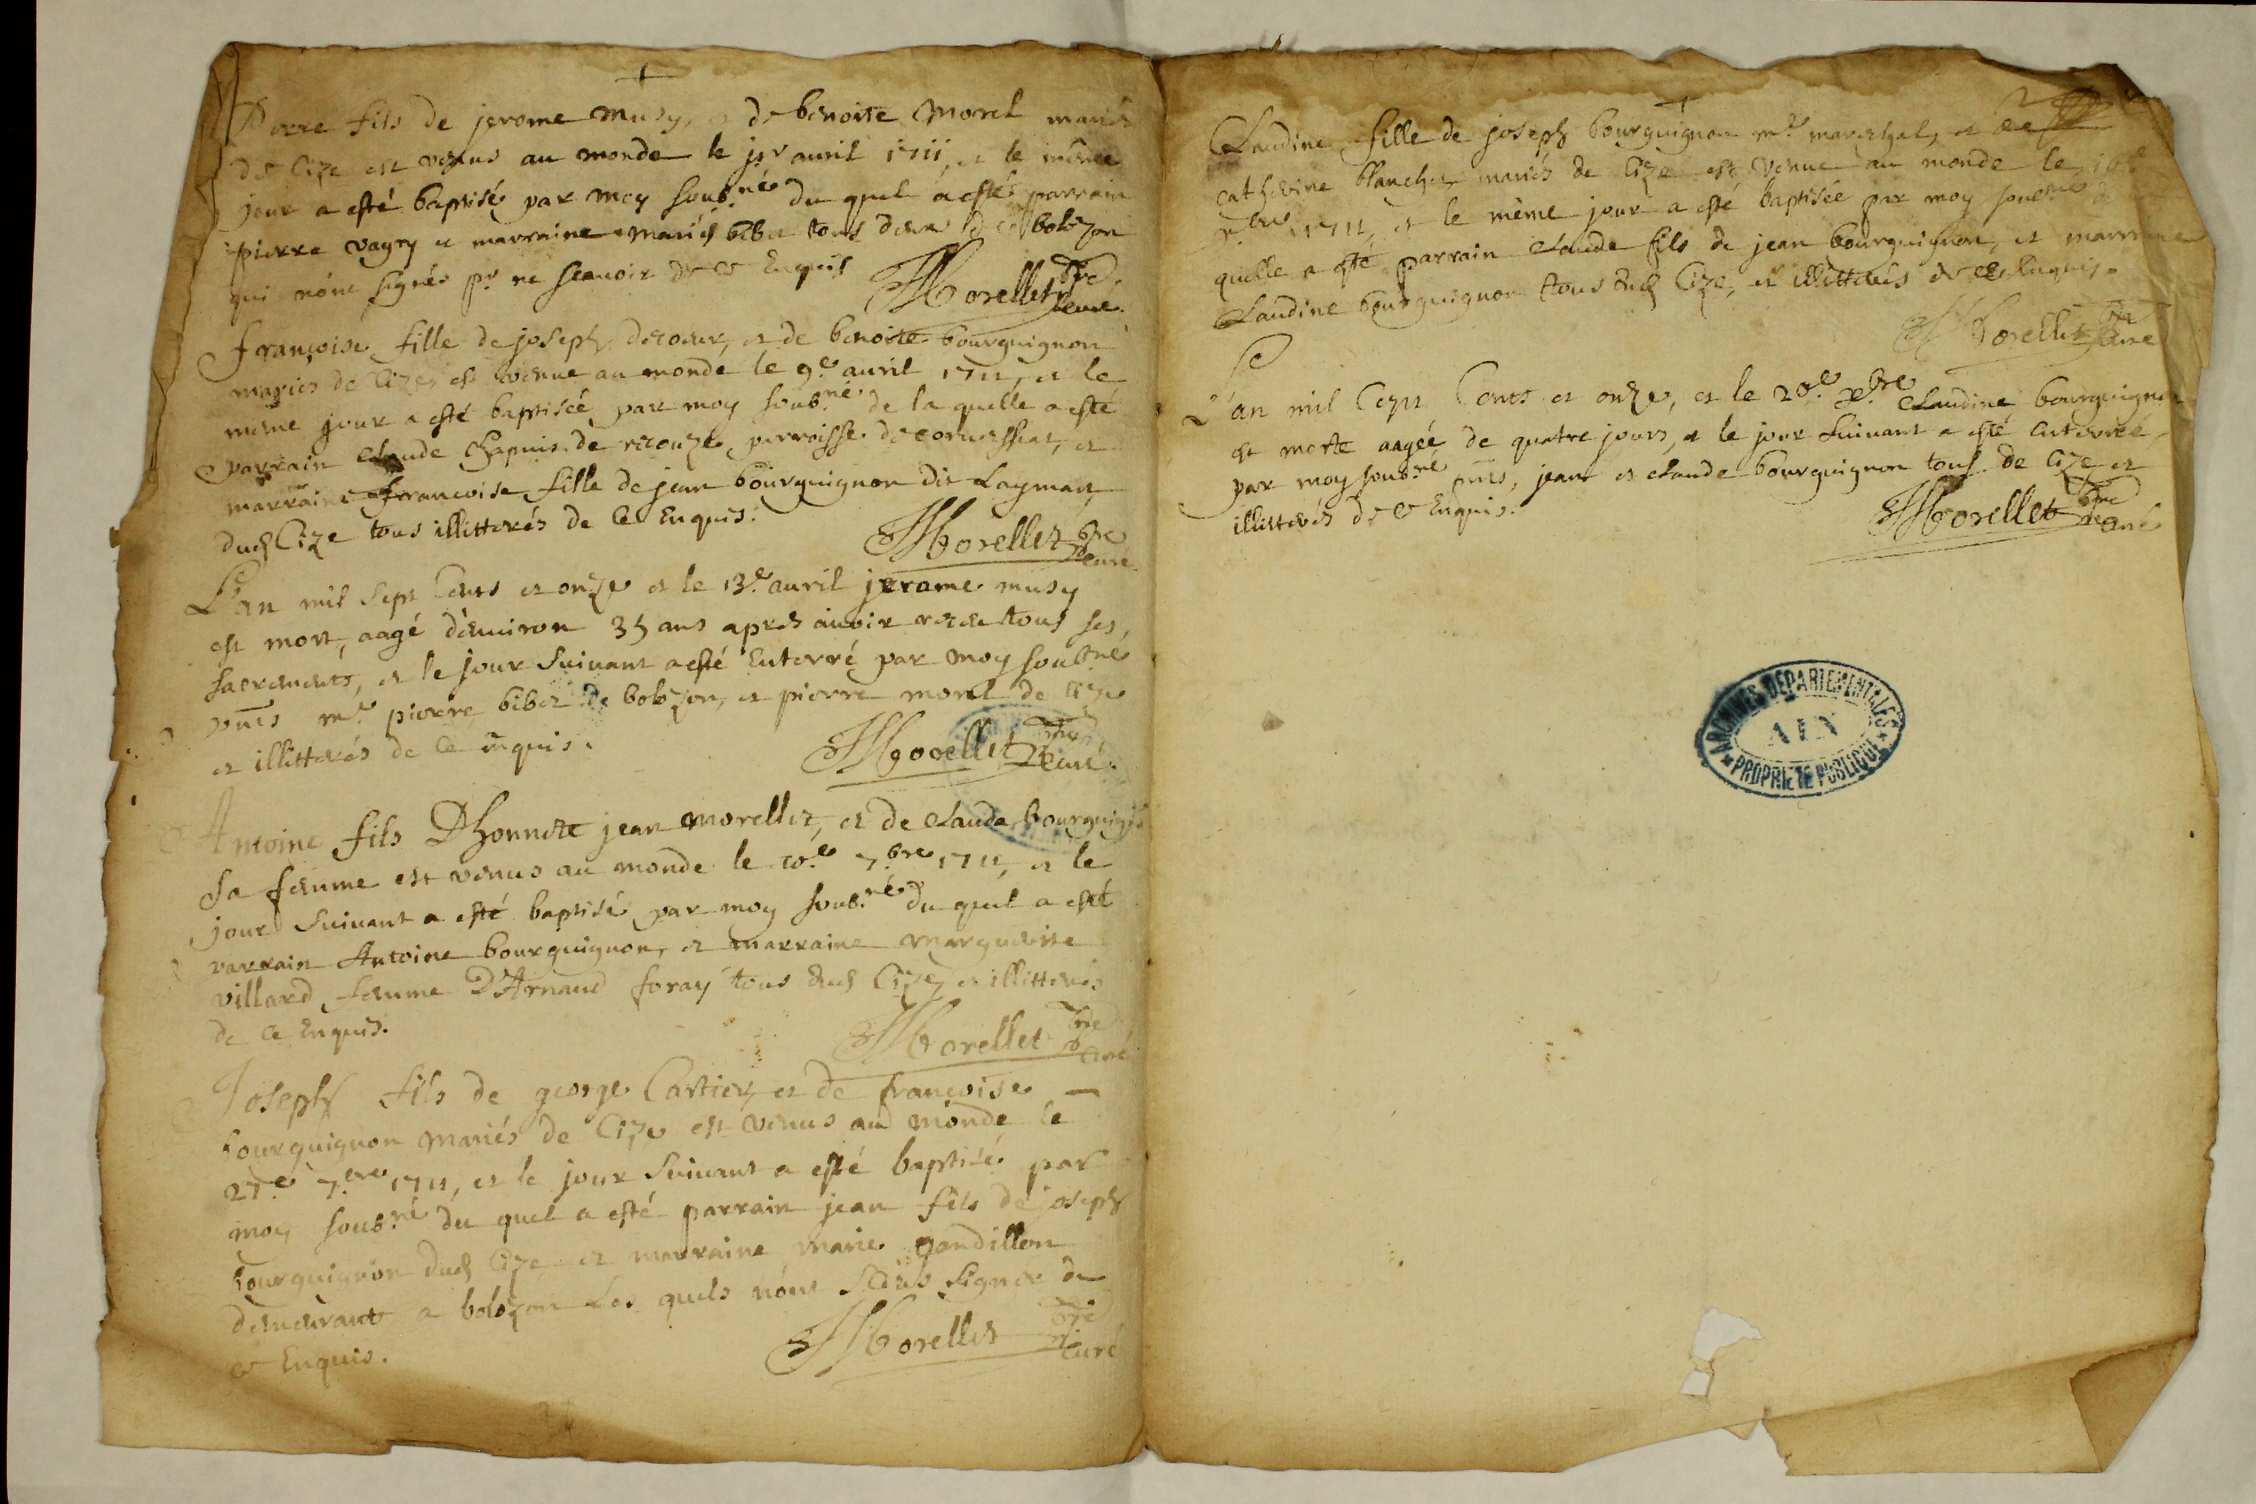 Pierre fils de jerome musy, et de benoite Morel mariés
de Cize est venus au monde le jer avril 1711, et le même
jour a esté baptisé par moy soub.né du quel a esté parrain
pierre vagry et marraine marie biber tous deux de bolozon
qui n'ont signés pr ne scavoir de ce Enquis
Morellet pbre curé
françoise fille de joseph decoeur, et de benoite bourguignon
mariés de Cize est venue au monde le 9e avril 1711, et le
même jour a esté baptisée par moy soub.né de la quelle a esté
parrain claude Chapuis de rcouze parroisse de corvessiat, et
marraine francoise fille de jean bourguignon dit Layman
dud Cize tous illitterés de Ce Enquis.
Morellet pbre curé
L'an mil sept Cents et onze et le 13e avril jerome musy
est mort, aagé d'environ 35 ans apres avoir receu tous ses
sacrements, et le jour suivant a esté Enterré par moy soub.né
pnts me pierre biber de bolozon, et pierre morel de Cize
et illitterés de Ce enquis.
Morellet pbre curé
Antoine fils D'honnete jean morellet, et de claude bourguignon
sa femme est venus au monde le 10e 7bre 1711, et le
jour suivant a esté baptisé par moy soub.né du quel a esté
parrain Antoine bourguignon, et marraine marguerite
villard femme D'Arnaud foray tous dud Cize, et illitterés
de Ce Enquis.
Morellet pbre curé
Joseph fils de george Cartier, et de françoise
bourguignon mariés de Cize est venus au monde le
27e 7bre 1711, et le jour suivant a esté baptisé par
moy soub.né du quel a esté parrain jean fils de joseph
bourguignon dud Cize et marraine marie gandillon
demeurant a bolozon Les quels n'ont sceus signer de
ce Enquis.
Morellet pbre curé
Claudine fille de joseph bourguignon me mareschal, et de
catherine blanchet mariés de Cize est venue au monde le 16e
bre 1711, et le même jour a esté baptisée par moy soub.né de
quelle a esté parrain claude fils de jean bourguignon, et marraine
claudine bourguignon tous dud Cize, et illitterés de ce Enquis.
Morellet pbre curé
L'an mil Cept Cents et onze, et le 20e Xbre claudine bourguignon
est morte aagée de quatre jours, et le jour suivant a esté enterrée
par moy soub.né pnts, jean et claude bourguignon tous de Cize et
illitterés de ce Enquis.
Morellet pbre curé
ARCHIVES DÉPARTEMENTALES
AIN
PROPRIÉTÉ PUBLIQUE